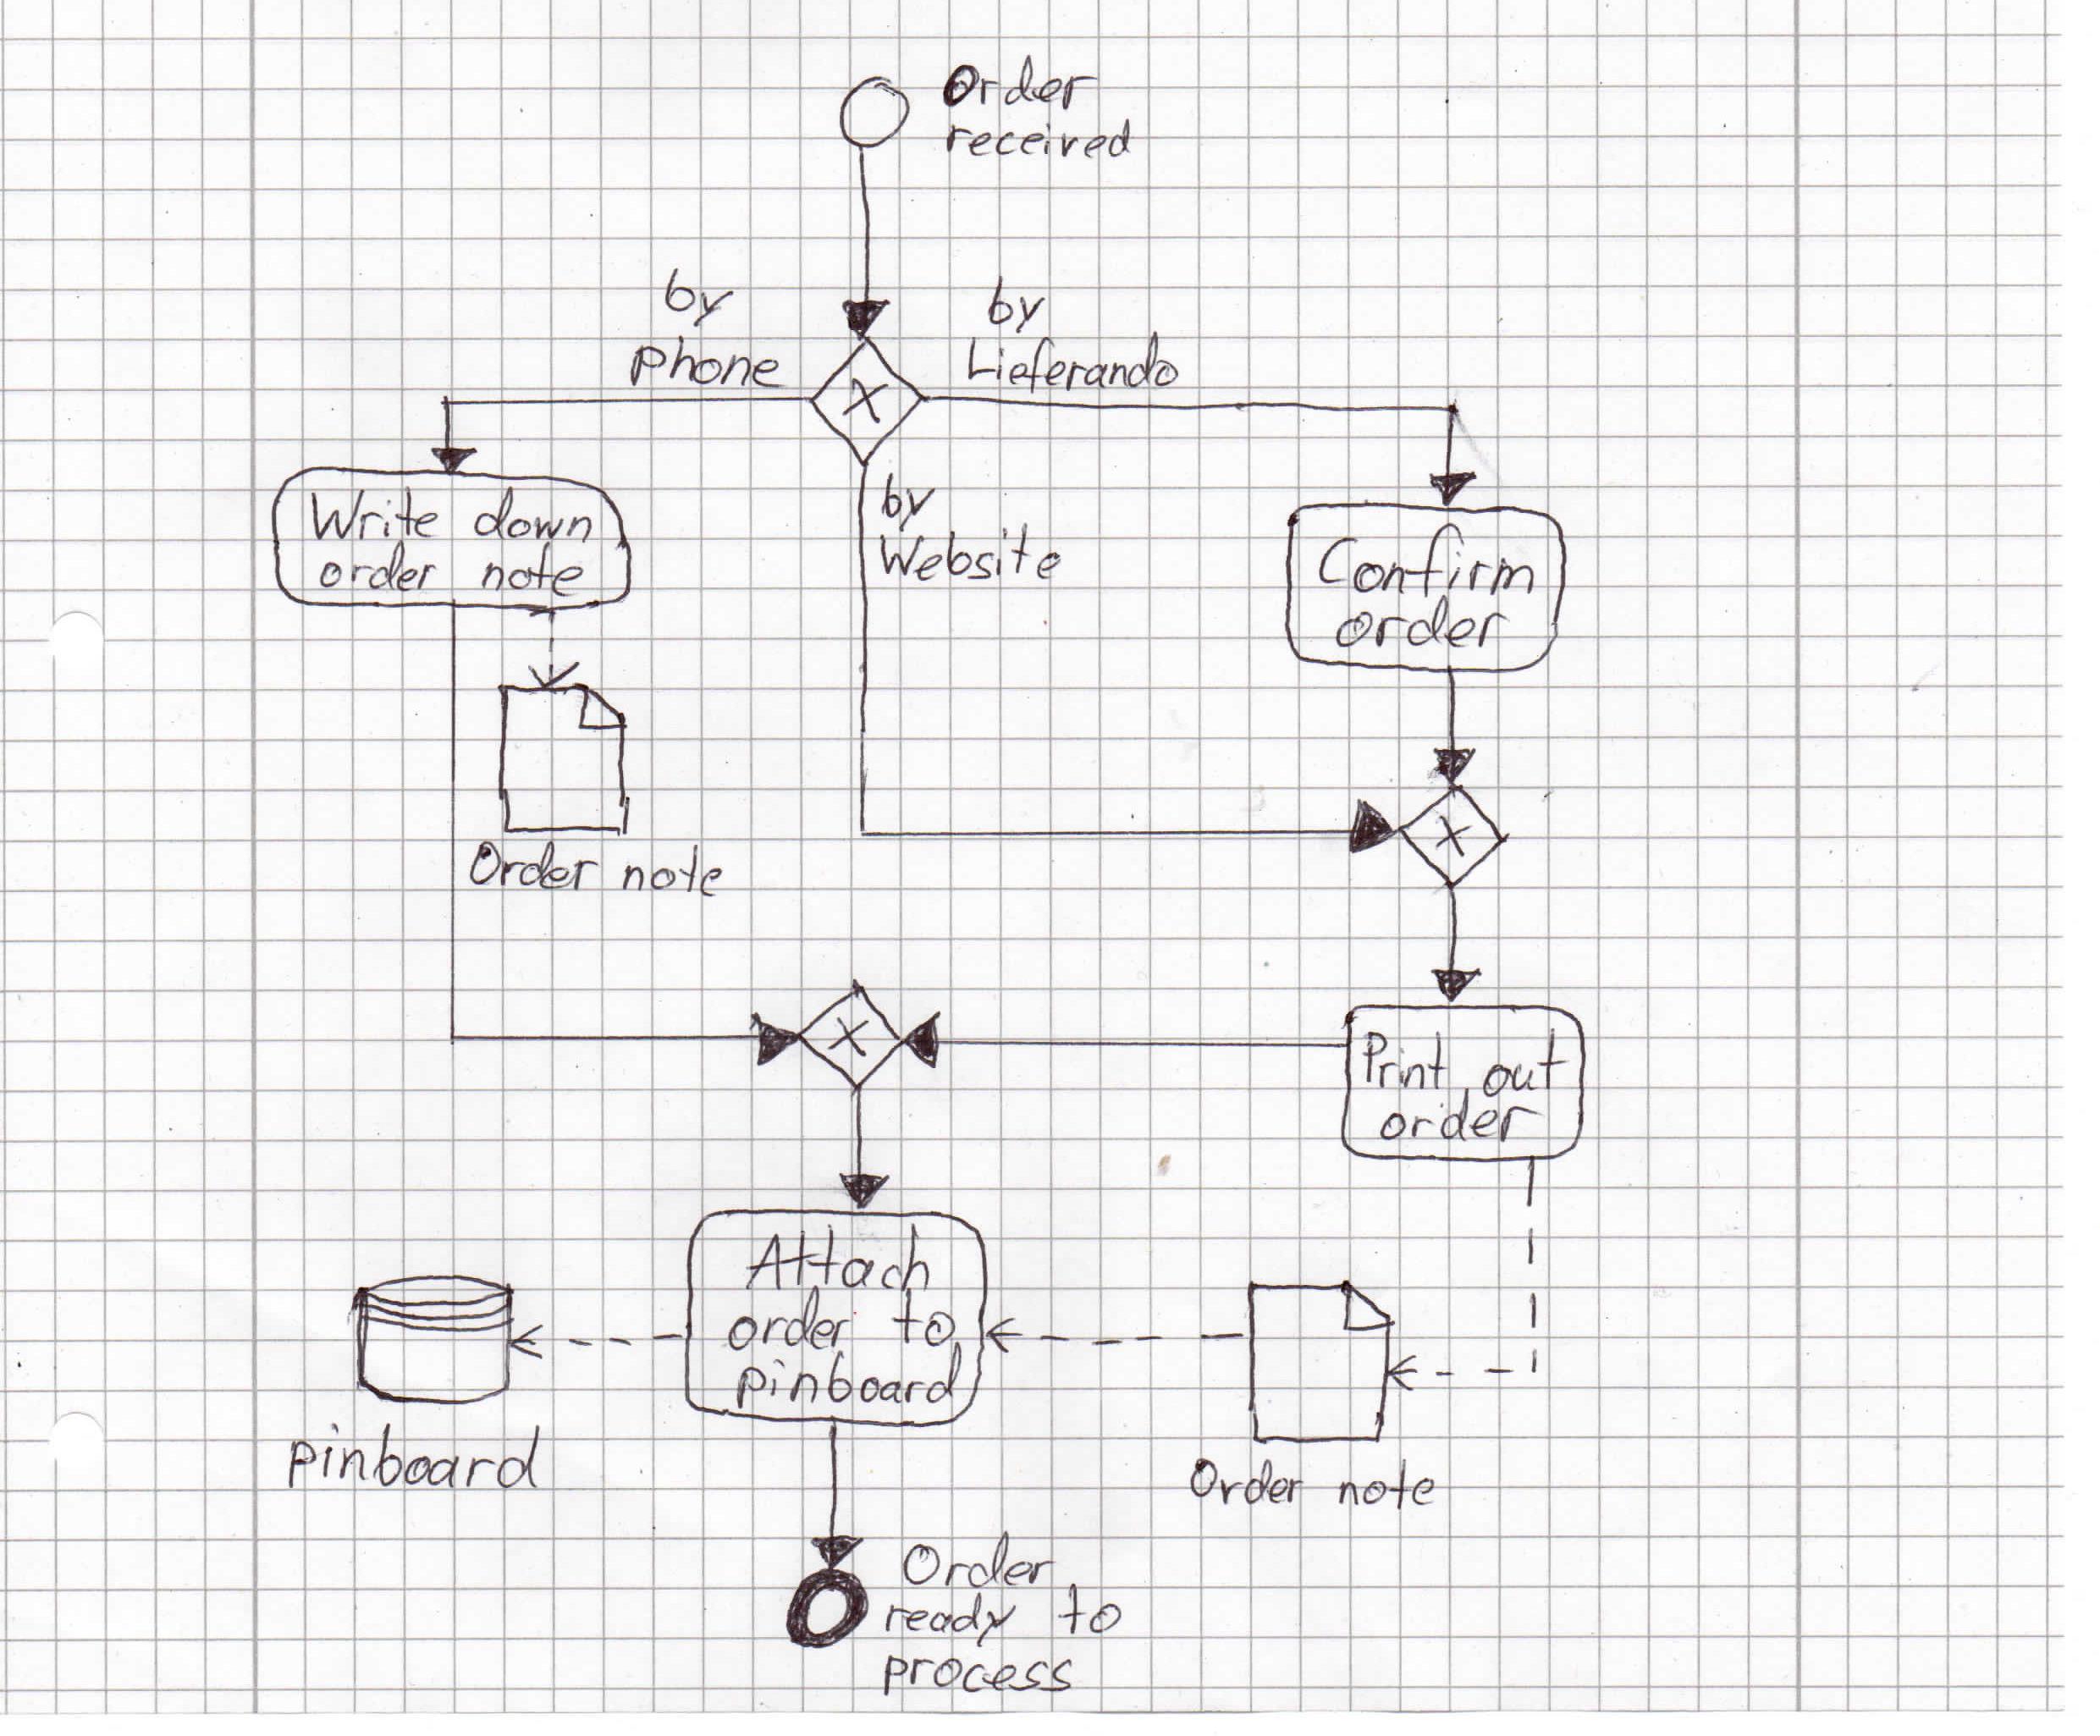 Order
received
by
phone
by
Lieferando
X
Write down
order note
by
Website
Confirm
order
Order note
X
X
Print out
order
Attach
order to
pinboard
pinboard
Order note
Order
ready to
process